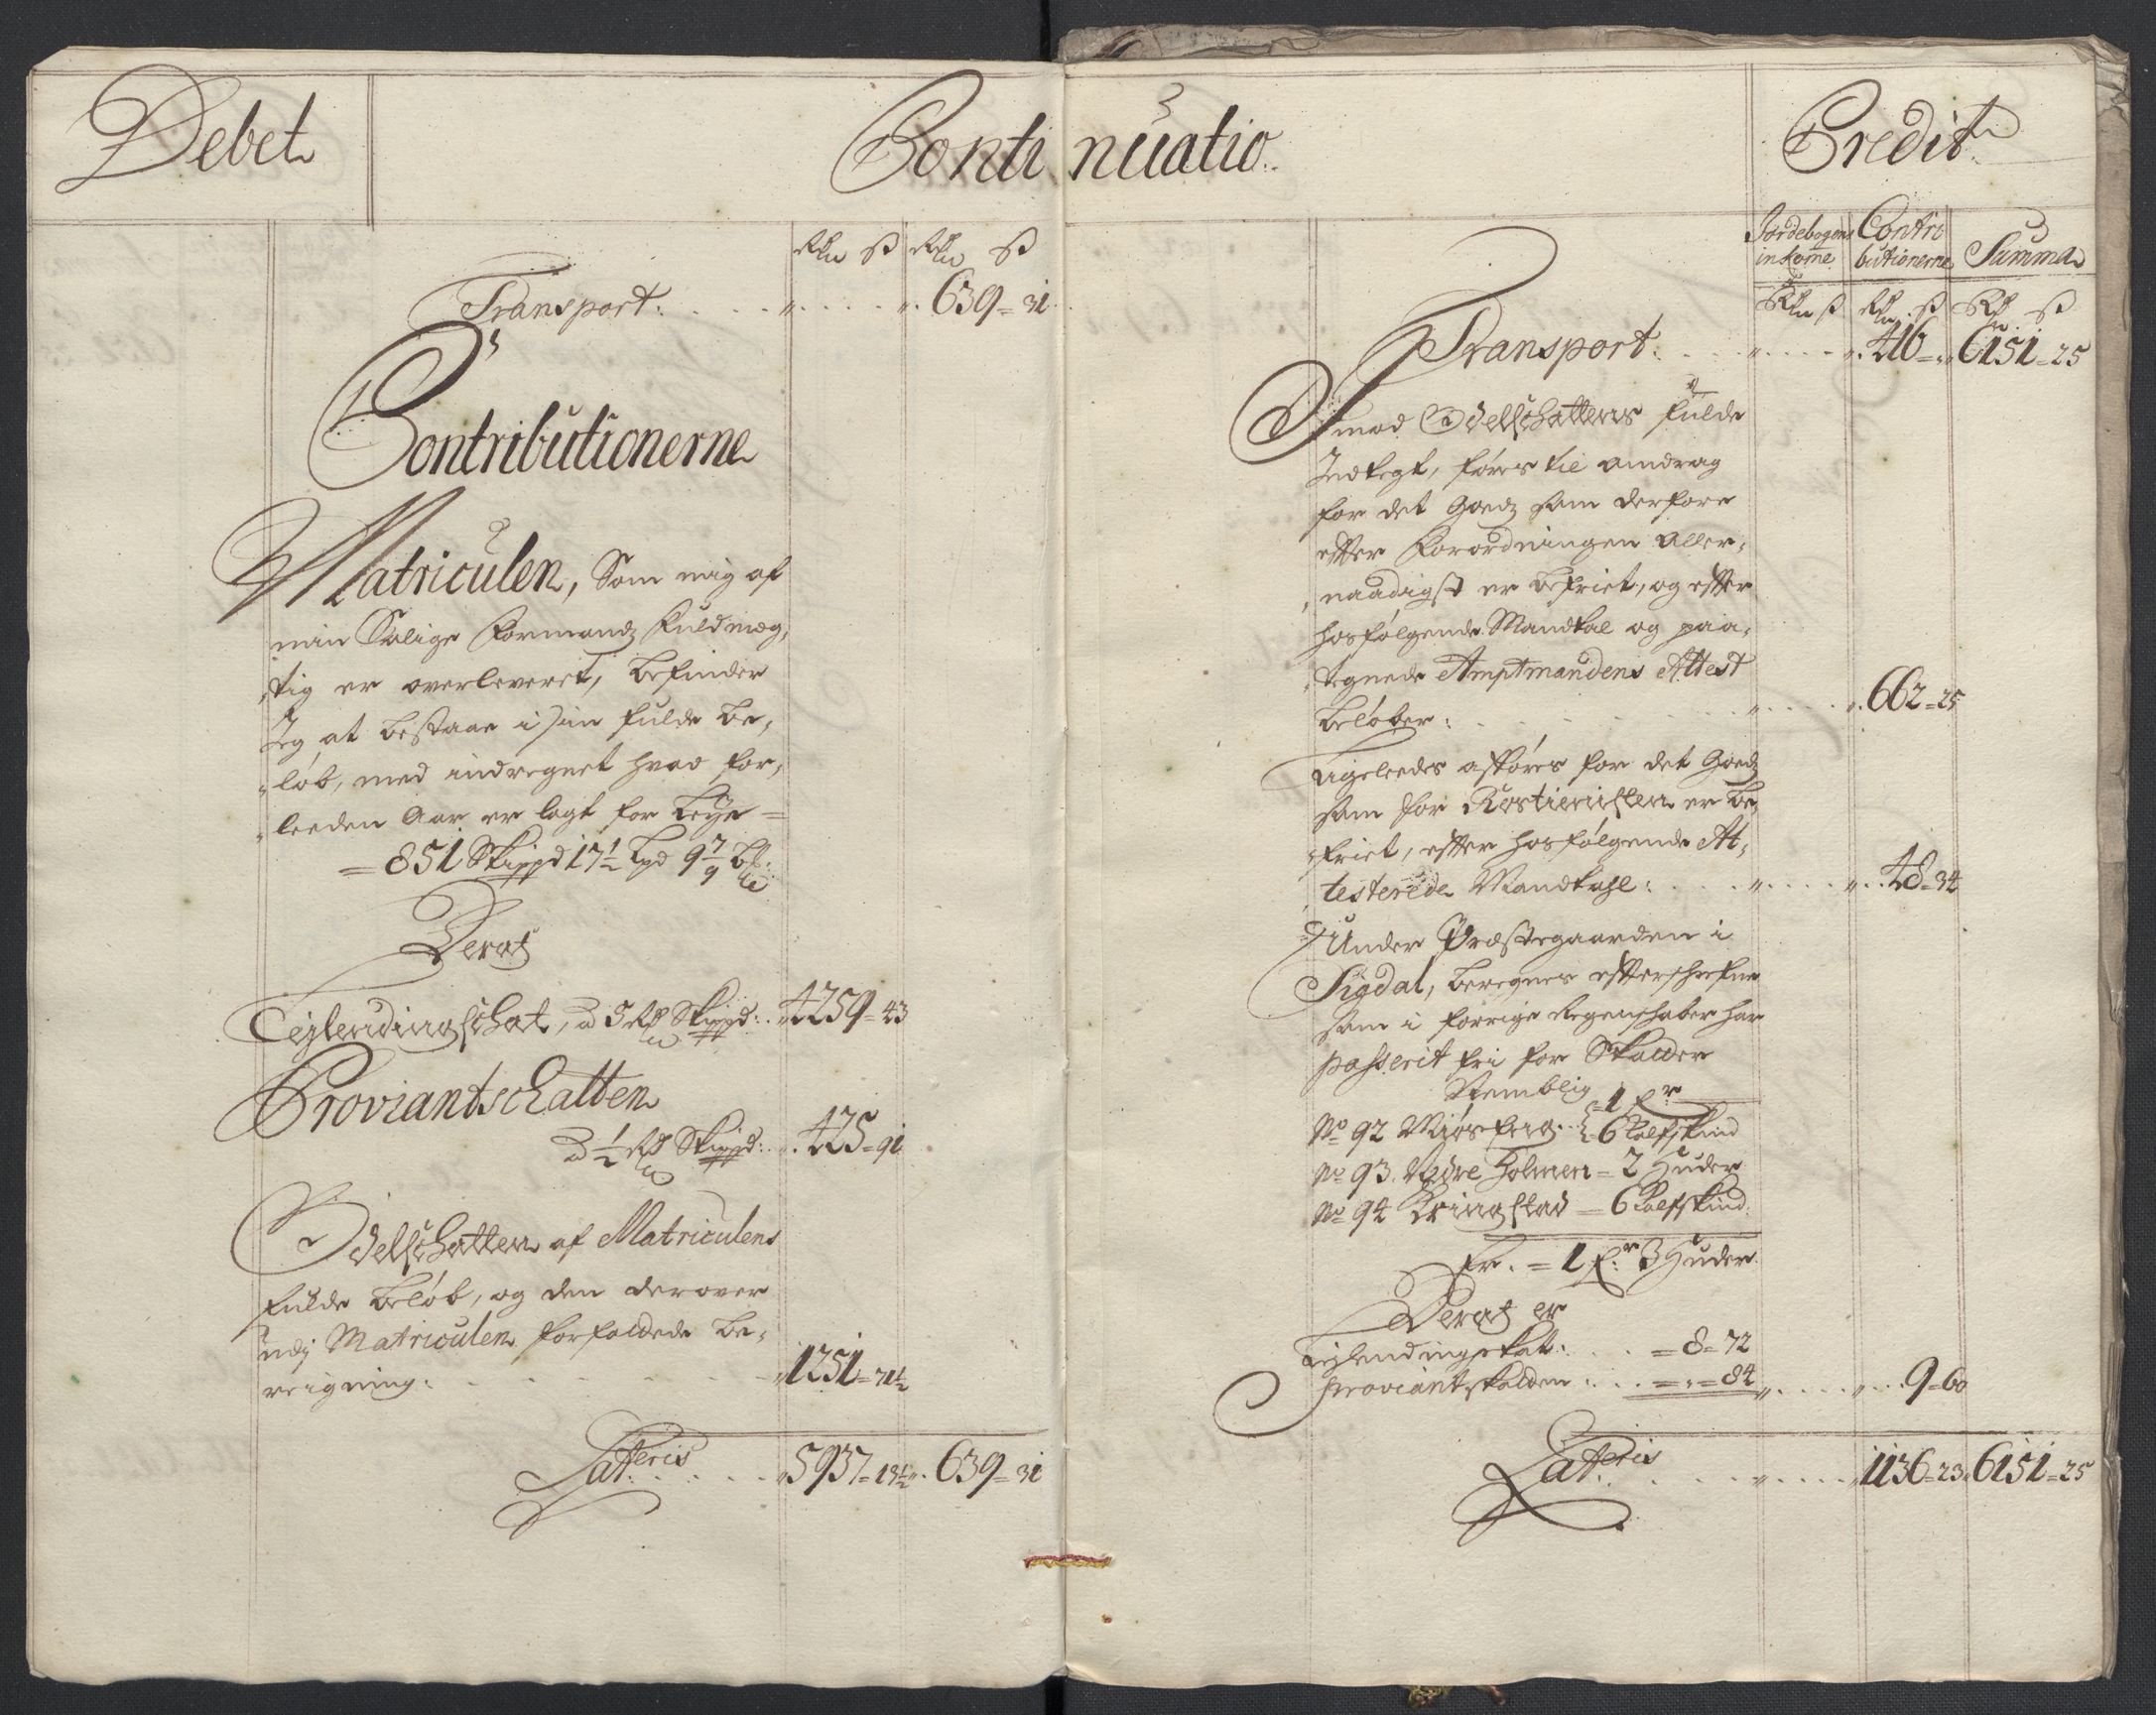 Debet
Continuatio.
Credit
Rdr ß Rdr ß
Transport: 639 = 31
Contributionerne
Matriculen, Som mig af
min Salige Formandz Fuldmæg,
tig er overleveret, befinder
Jeg at bestaae i sin fulde be,
løb, med indregnet hvad for,
leeden Aar er lagt for Leye =
= 851 Skippd 17½ Lpd 9 7/9 Bl:
Deraf
Leylendingschat, a 5 Rdr Skippd: 4259 = 43
Proviantschatten
a ½ Rdr Skippd: 425 = 91
Odelschatten af Matriculens
fulde beløb, og den derover
udj Matriculen forfattede be,
reigning: 1251 = 71½
Lateris 5937 = 13½ 639 = 31
Jordebogens inkome Contributionerne Summa
Rdr ß Rdr ß Rdr ß
Transport: 416 = " 6151 = 25
Imod Odelschattens fulde
Indtegt, føres til amdrag
for det Goedz som derfore
efter Forordningen Aller,
naadigst er befriet, og efter
hosfølgende Mandtal og paa,
tegnede Amptmandens Attest
beløber: 662 = 25
Ligeleedes afføres for det Goedz
som for Rostienisten er be,
friet, efter hosfølgende At,
testerede Mandtahl: 48 = 34
Under Præstegaarden i
Sigdal, beregnes efterschrefne
som i forrige Regenschaber har
passerit fri for Skatter
Nemblig
No 92 = 1 f:r 6 Kalfskind
No 93. Nedre Holmen = 2 Huder
No 94 Kringstad = 6 Kalfskind.
Er. = 1 f:r 3 Huder
Deraf er
Leylendingskat: = 8 = 72
Proviantskatten: = " = 84 9 = 60
Lateris 1136 = 23 6151 = 25